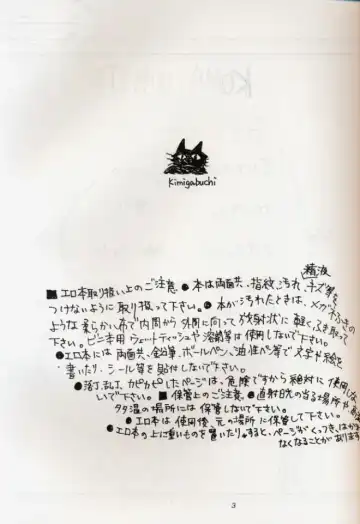 Kimigabuchi
精液
■エロ本取り扱い上のご注意 ●本は両面共、指紋、汚れ、キズ等を
つけないように取り扱って下さい。●本が汚れたときは、メガネふきの
ような柔らかい布で内周から外周に向って放射状に軽くふき取って
下さい。ビニ本用ウェットティッシュや溶剤等は使用しないで下さい。
●エロ本には両面共、鉛筆、ボールペン、油性ペン等で文字や絵を
書いたり、シール等を貼付しないで下さい。
●落丁、乱丁、カピカピしたページは、危険ですから絶対に使用しな
いで下さい。■保管上のご注意 ●直射日光の当る場所や
タタ温の場所には保管しないで下さい。
●エロ本は使用後、元の場所に保管して下さい。
●エロ本の上に重いものを置いたり。すると、ページがくっつき、はがせ
なくなることがあります
3